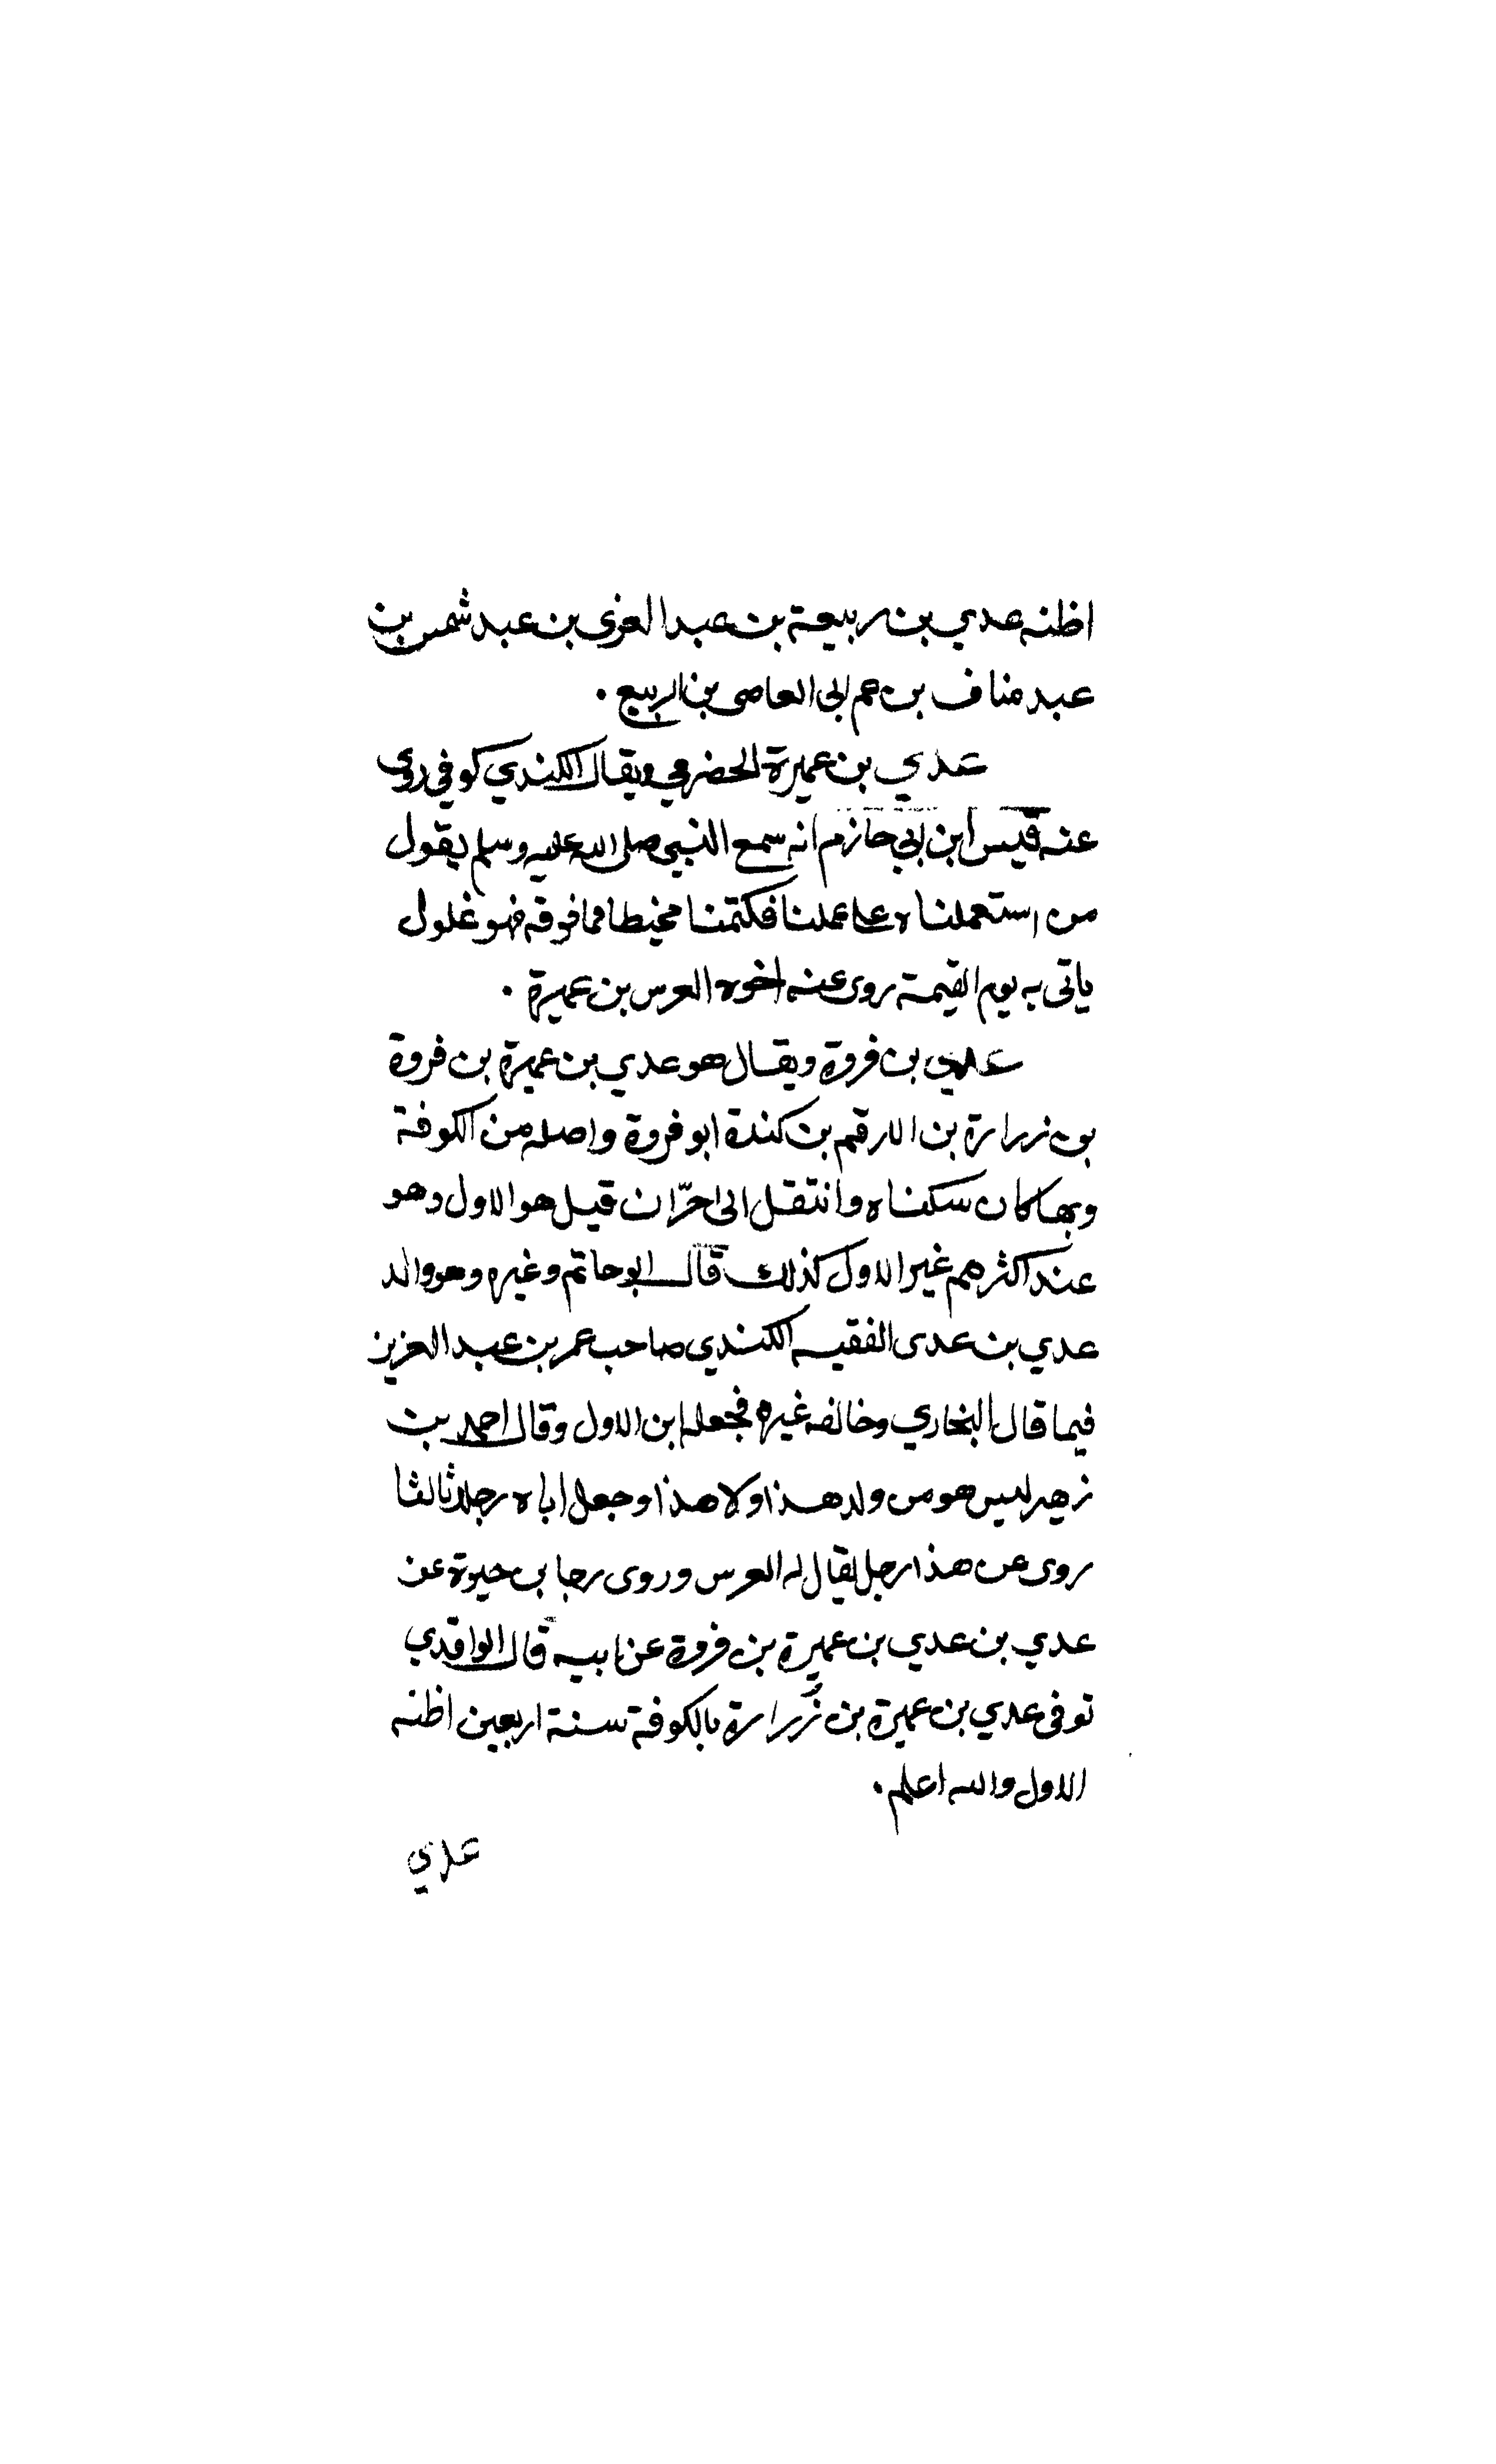 اظنه عدي بن ربيعة بن عبد العزى بن عبد شمس بن
عبد مناف بن عم ابى العاصى بن الربيع .
عدي بن عميرة الحضرمي ويقال الكندي كوفي روى
عنه قيس ابن ابي حازم انه سمع النبي صلى الله عليه وسلم يقول
من استعملناه على عملنا فكتمنا مخيطا فما فوقه فهو غلول
ياتى به يوم القيمة روى عنه اخوه العرس بن عميرة .
عدي بن فروة ويقال هو عدي بن عميرة بن فروة
بن زرارة بن الارقم بن كندة ابو فروة واصله من الكوفة
وبها كان سكناه وانتقل الى حرّان قيل هو الاول وهو
عند اكثرهم غير الاول كذلك قال ابو حاتم وغيره وهو والد
عدي بن عدى الفقيه الكندي صاحب عمر بن عبد العزيز
فيما قال البخاري وخالفه غيره فجعله ابن الاول وقال احمد بن
زهير ليس هو من ولد هذا ولا هذا وجعل اباه رجلا ثالثا
روى عن هذا رجل يقال له العرس وروى رجا بن حيوة عن
عدي بن عدي بن عميرة بن فروة عن ابيه قال الواقدي
توفى عدي بن عميرة بن زُرارة بالكوفة سنة اربعين اظنه
الاول والله اعلم .
عدي